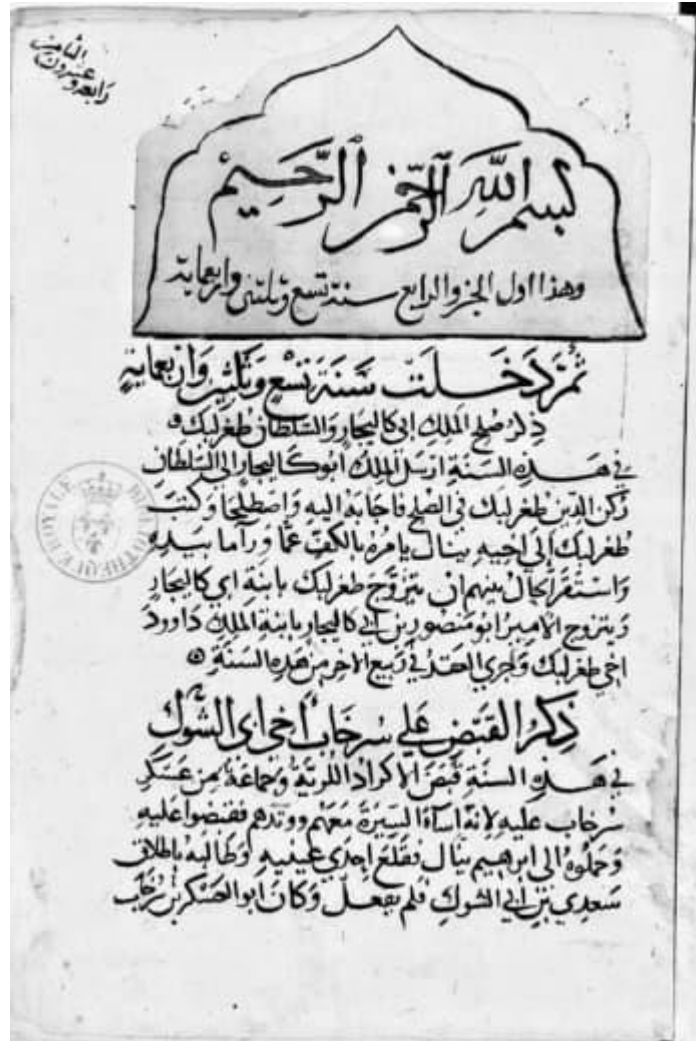 الثامن
رابع وعشرون
بسم الله الرحمن الرحيم
وهذا اول الجزو الرابع سنة تسع وثلثين واربعماية
ثم دخلت سنة تسع وثلثين واربعماية
ذكر صلح الملك ابي كاليجار والسلطان طغرلبك
في هذه السنة ارسل الملك ابو كاليجار الى السلطان
ركن الدين طغرلبك في الصلح فاجابه اليه واصطلحا وكتب
طغرلبك الى اخيه ينال يامره بالكف عما ورآما بيده
واستقر الحال بينهم ان يتزوج طغرلبك بابنة ابي كاليجار
ويتزوج الامير ابو منصور بن ابي كاليجار بابنة الملك داوود
اخي طغرلبك وجري العقد في ربيع الاخر من هذه السنة
ذكر القبض على سرخاب اخي ابي الشوك
في هذه السنة قبض الاكراد اللرية وجماعة من عسكر
سرخاب عليه لانه اسآء السيرة معهم ووترهم فقبضوا عليه
وحملوه الى ابرهيم ينال فقلع احدي عينيه وطالبه باطلاق
سعدي بن ابي الشوك فلم يفعل وكان ابو العسكر بن سرخاب
BIBLIOTHEQUE ROYALE